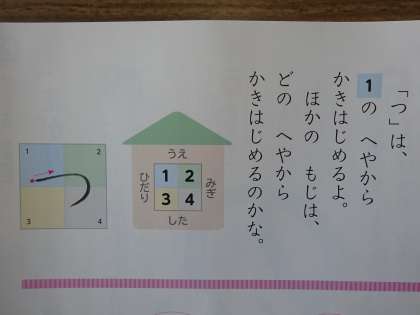 「つ」は、
1の へやから
かきはじめるよ。
ほかの もじは、
どの へやから
かきはじめるのかな。
うえ
ひだり
1 2
3 4
みぎ
した
1 2
つ
3 4